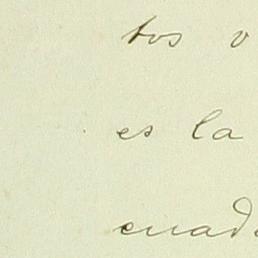 tos v
es la
cuad